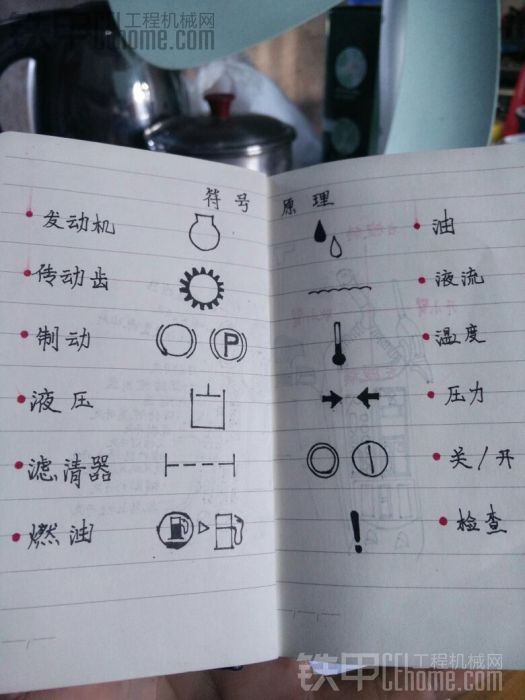 铁甲 工程机械网
CEhome.com
铁甲 工程机械网
CEhome.com
符号 原理
发动机
传动齿
制动 P
液压
滤清器
燃油
油
液流
温度
压力
关/开
! 检查
铁甲 工程机械网
CEhome.com